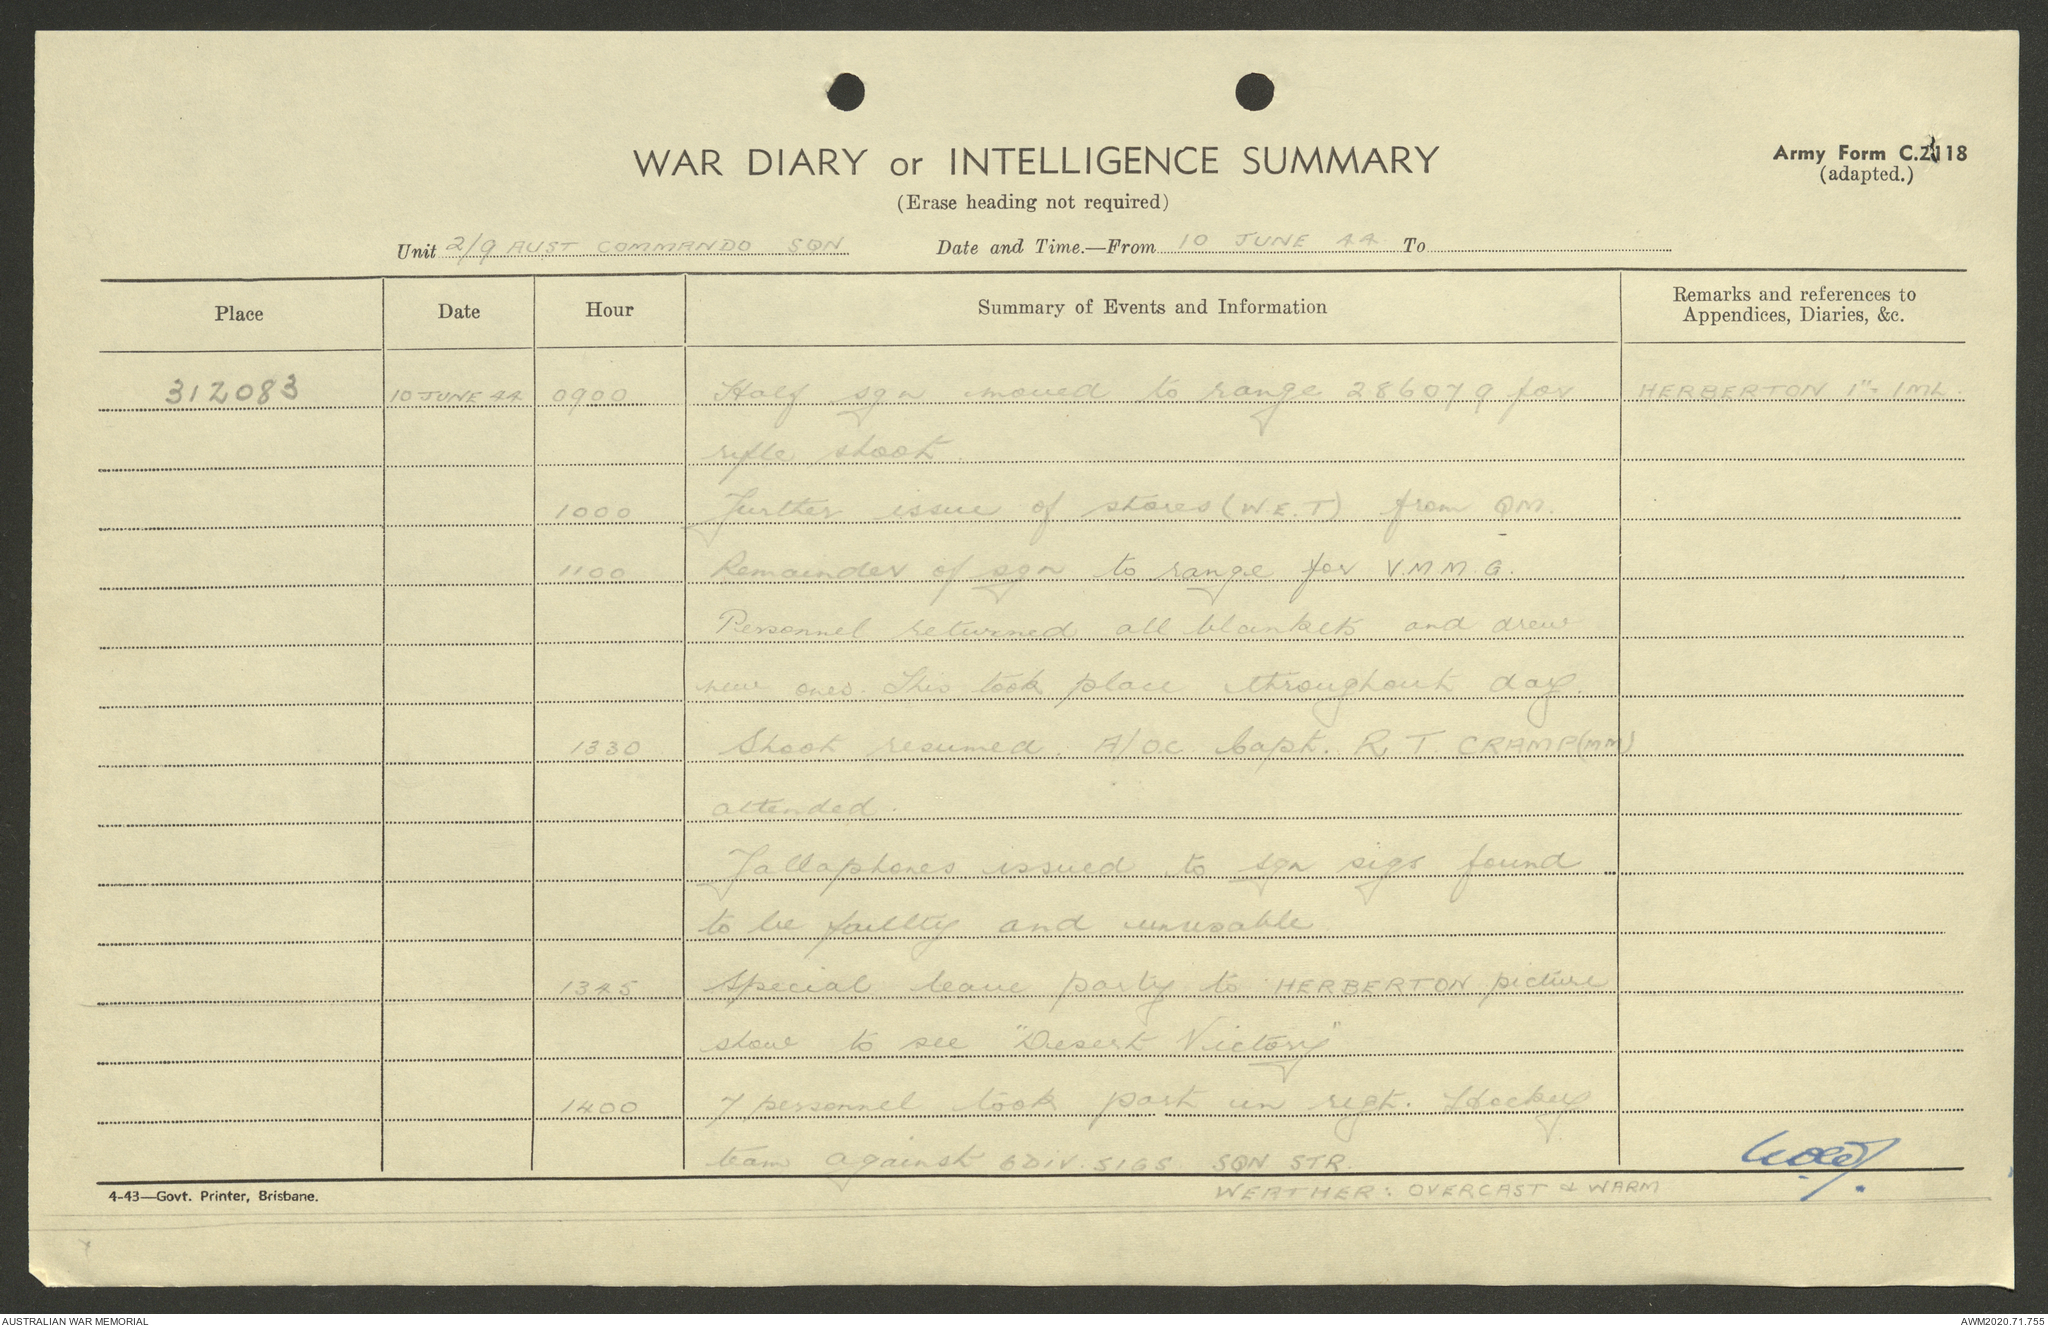 WAR DIARY or INTELLIGENCE SUMMARY
Army Form C.2118
(adapted.)
(Erase heading not required)
Unit 2/9 AUST COMMANDO SQN Date and Time.—From 10 JUNE 44 To
Place Date Hour Summary of Events and Information Remarks and references to Appendices, Diaries, &c.
312083 10 JUNE 44 0900 Half sqn moved to range 286079 for HERBERTON 1" - 1ML.
rifle shoot.
1000 Further issue of stores (W.E.T) from QM.
1100 Remainder of sqn to range for V.M.M.G.
Personnel returned all blankets and drew
new ones. This took place throughout day.
1330 Shoot resumed. A/OC Capt. R. T. CRAMP (MM)
attended.
Tallaphones issued to sqn sigs found
to be faulty and unusable
1345 Special leave party to HERBERTON picture
show to see "Desert Victory"
1400 7 personnel took part in regt. Hockey
team against 6 DIV. SIGS SQN STR.
WEATHER: OVERCAST & WARM
4-43—Govt. Printer, Brisbane.
AUSTRALIAN WAR MEMORIAL
AWM2020.71.755